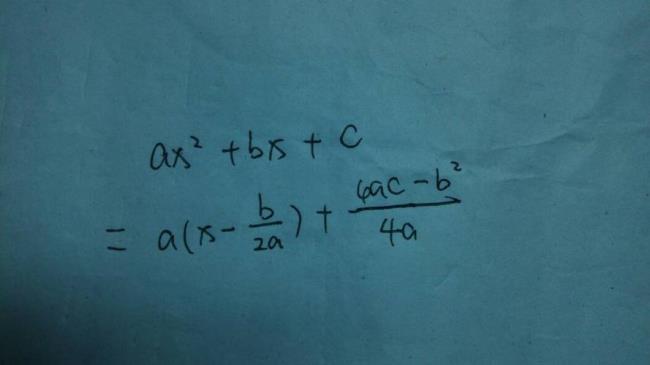 ax² + bx + c
= a(x - b/2a) + (4ac - b²)/4a